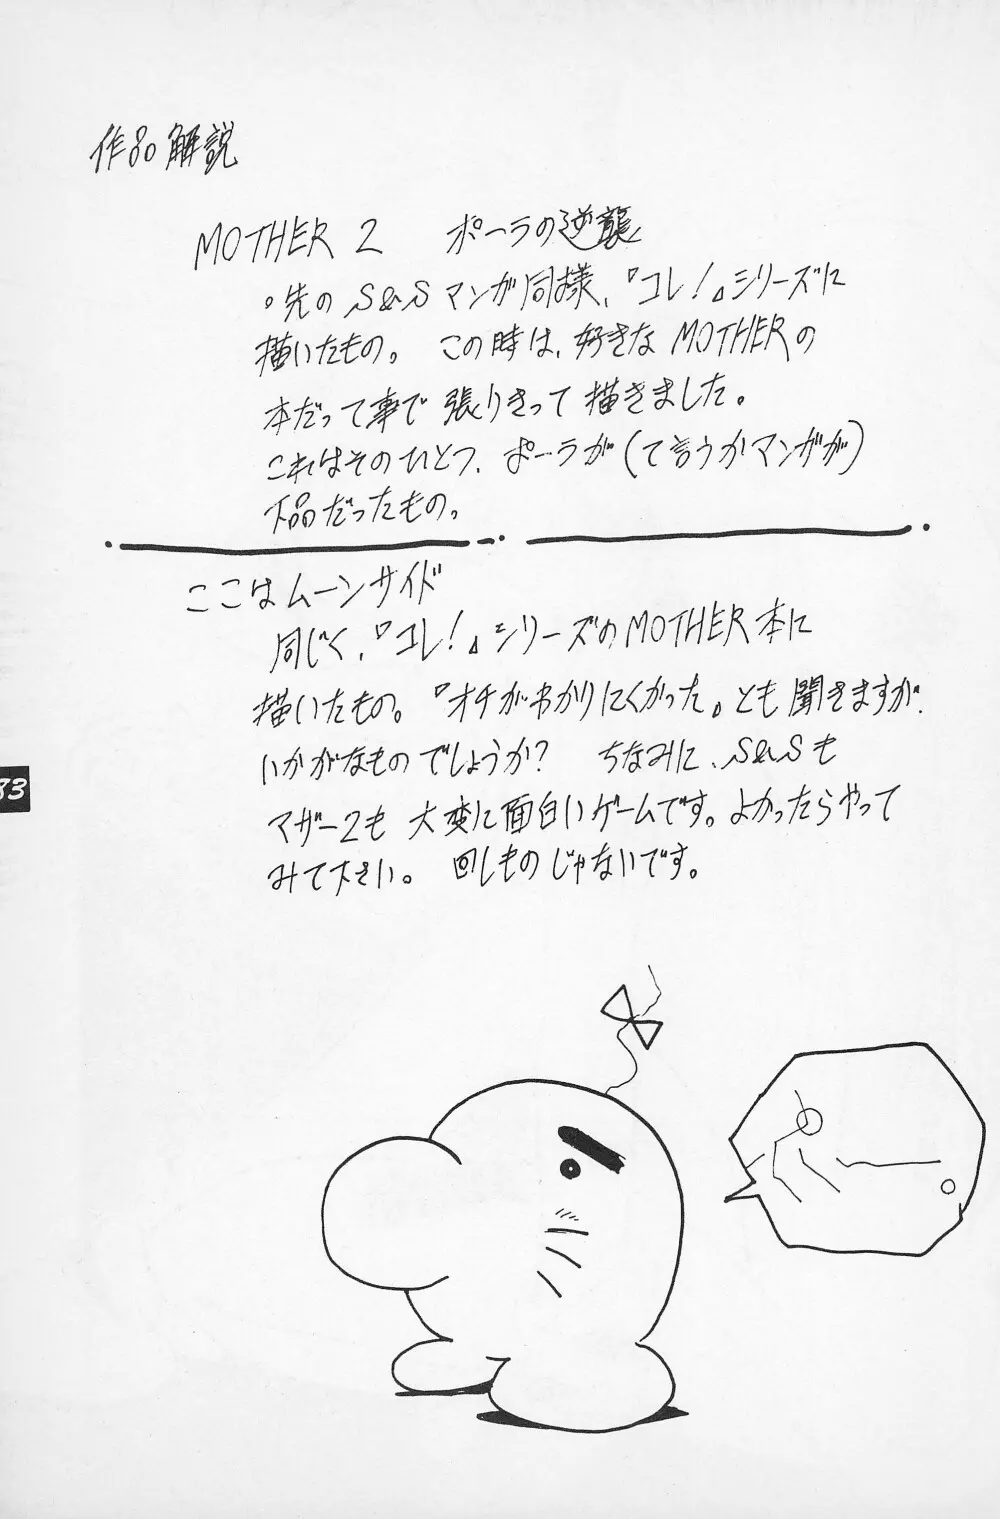 作品解説
MOTHER 2 ポーラの逆襲
・先のS&Sマンガ同様、『コレ!』シリーズに
描いたもの。 この時は、好きなMOTHERの
本だって事で張りきって描きました。
これはそのひとつ、ポーラが(て言うかマンガが)
下品だったもの。
ここはムーンサイド
同じく、『コレ!』シリーズのMOTHER本に
描いたもの。『オチがわかりにくかった』とも聞きますが、
いかがなものでしょうか? ちなみに、S&Sも
マザー2も大変に面白いゲームです。よかったらやって
みて下さい。 回しものじゃないです。
83